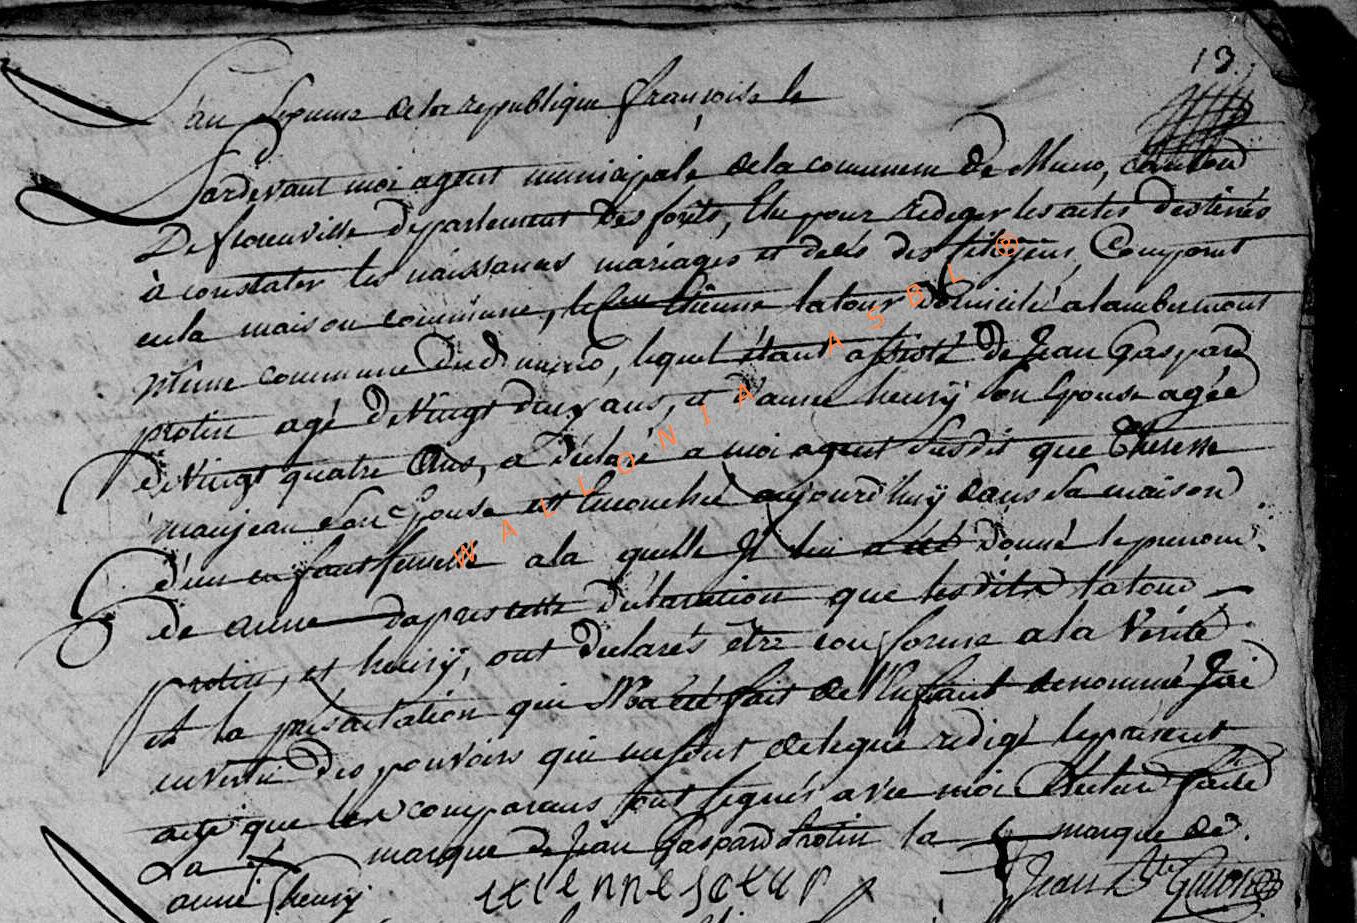 13.
L'an septieme de la republique françoise le
Pardevant moi agent municipale de la commune de Muno, canton
De florenville departement des forêts, Elu pour rediger les actes destinés
à constater les naissances mariages et decès des Citoyens, Comparut
en la maison commune, le Cen Etienne latour domicilié a lambermont
même commune dud muno, lequel étant assisté de Jean Gaspard
protin agé de Vingt deux ans, et d'anne henrÿ son Epouse agée
de Vingt quatre Ans, a déclaré a moi agent susdit que Theresse
manjean son Epouse est accouchée aujourd'huÿ dans sa maison
d'un enfant femelle a la quelle Il lui a été donné le prenom
de anne dapres cette déclaration que lesdits latour
protin, et henrÿ, ont declarés être conforme a la Vérité
et la présentation qui M'a été fait de l'Enfant denommé J'ai
en vertu des pouvoirs qui me sont delegué redigé le présent
acte que les comparans sont signés avec moi
La X marque de Jean Gaspard Protin la X marque de
anne henrÿ
Jean Bte
WALLONIA ASBL ®